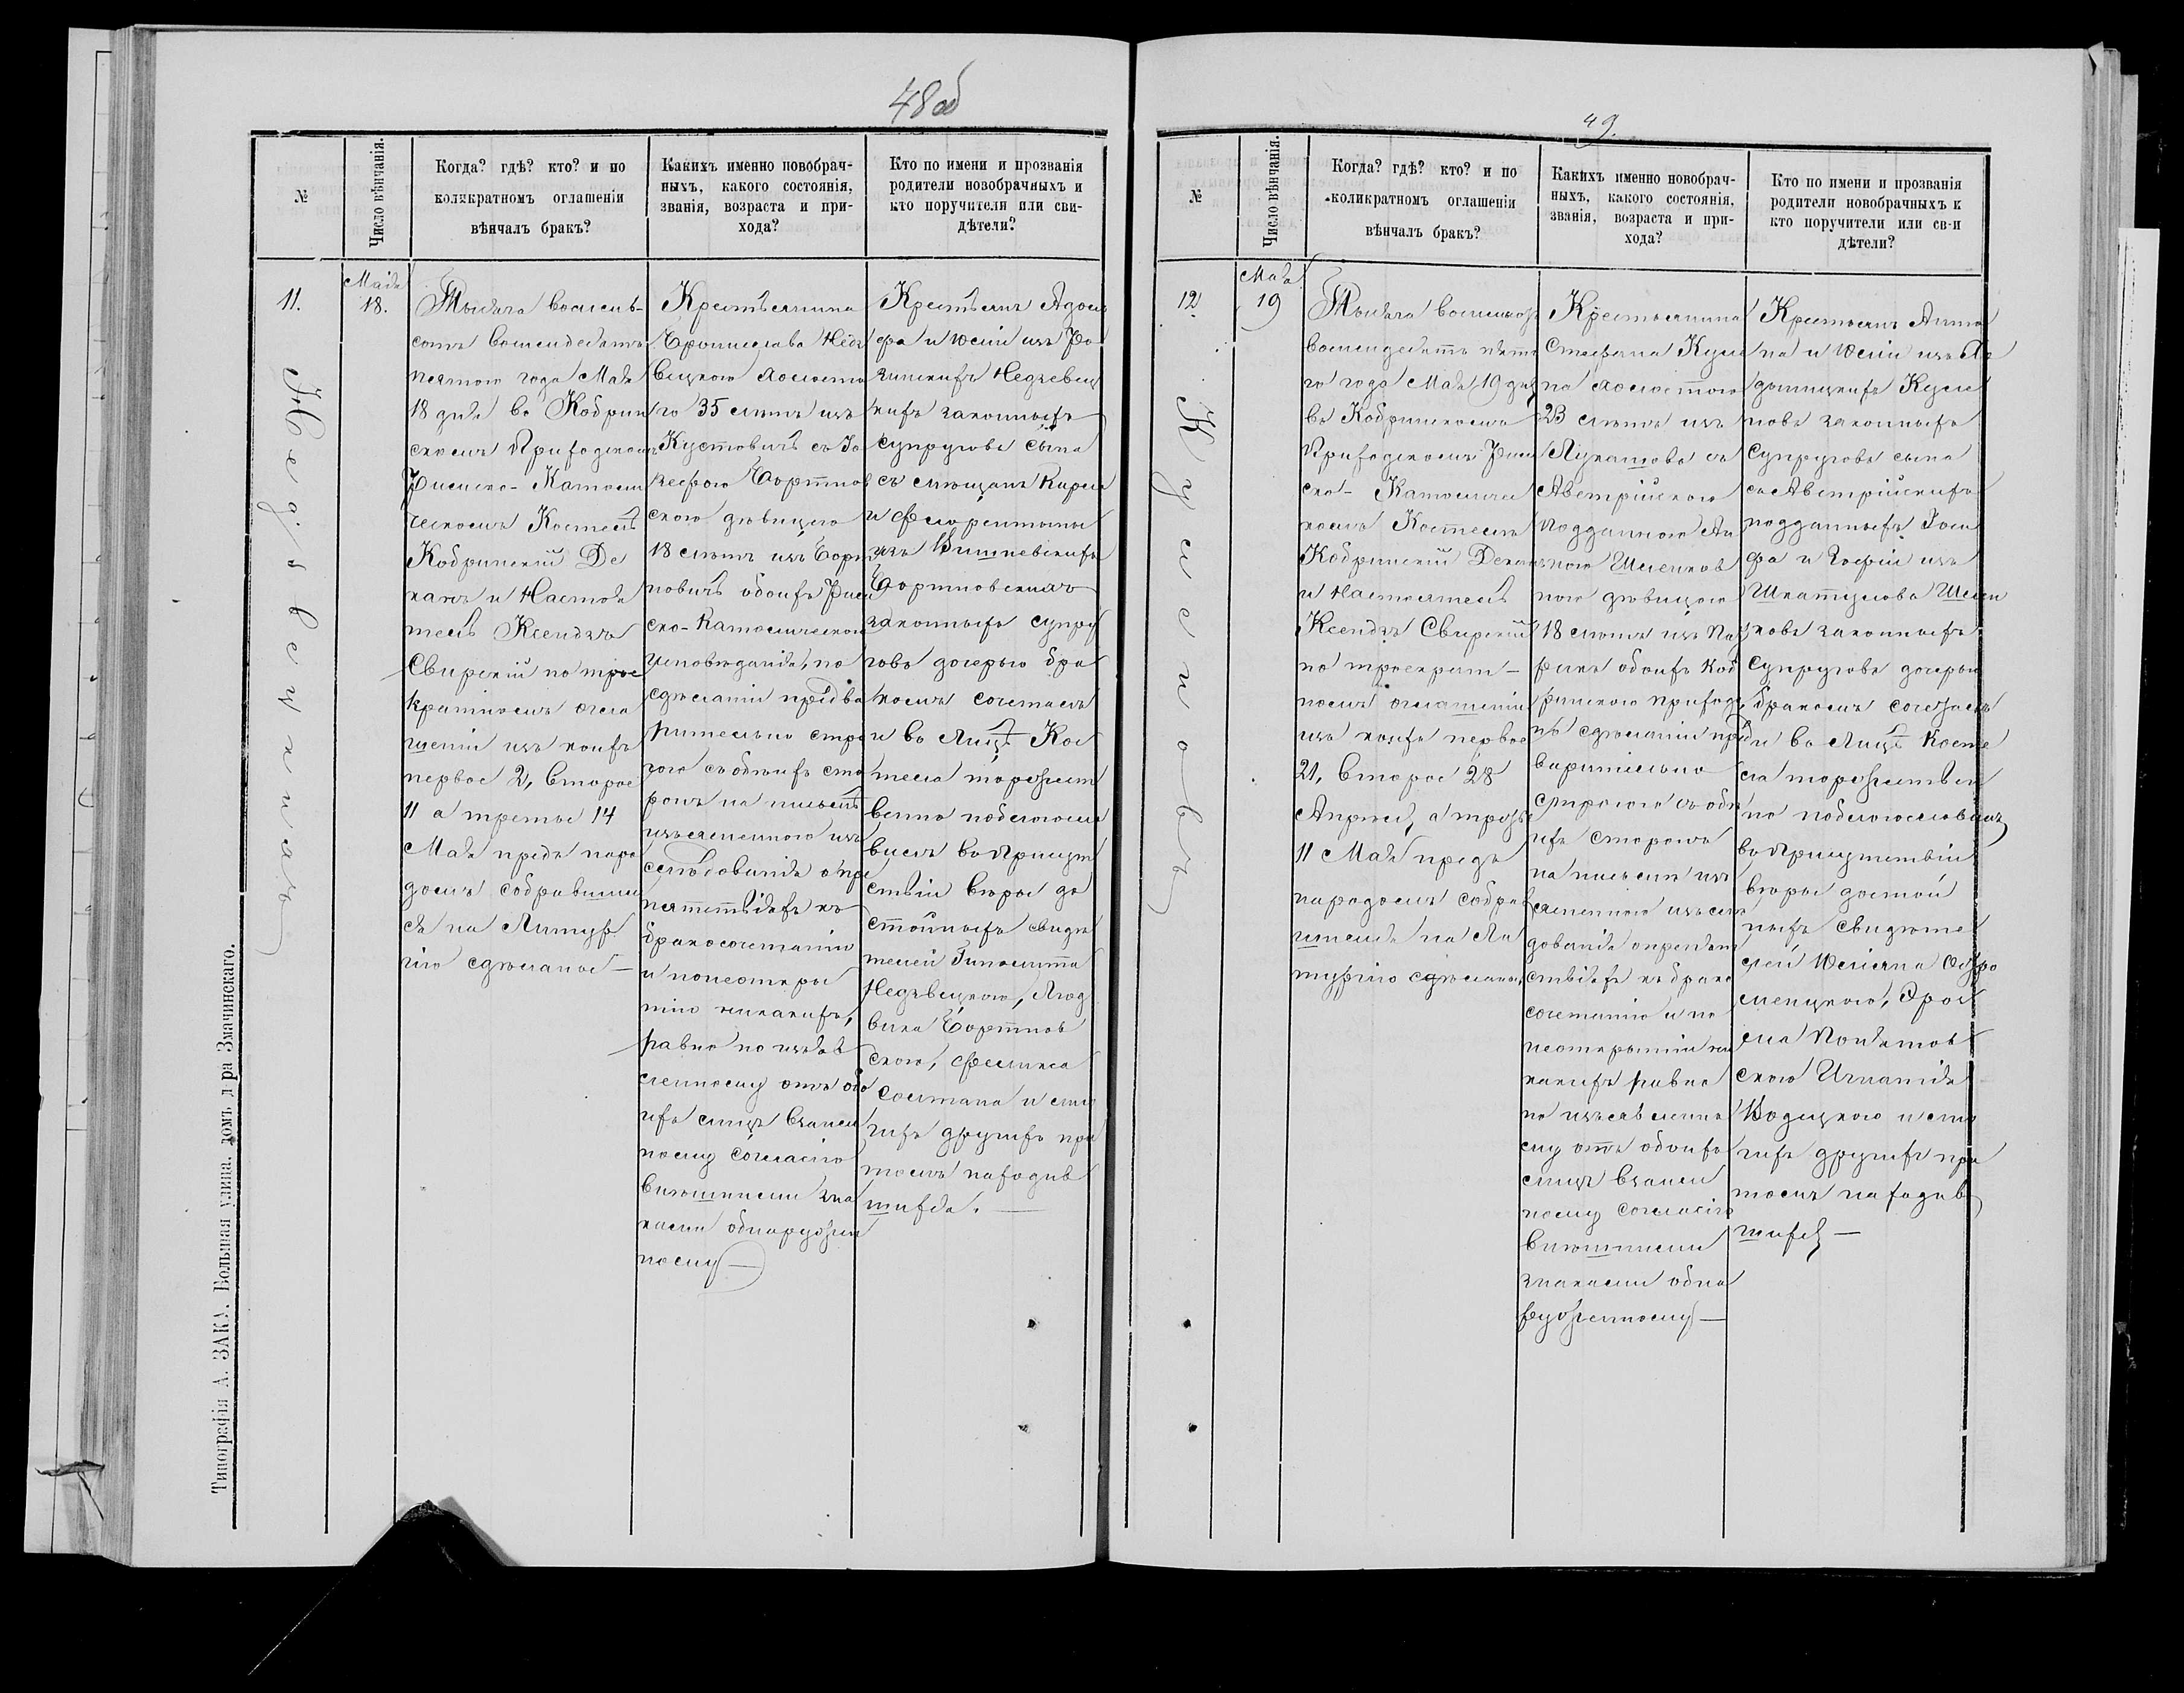 48 об
№
Число вѣнчанія.
Когда? гдѣ? кто? и по
коликратномъ оглашеніи
вѣнчалъ бракъ?
Какихъ именно новобрач-
ныхъ, какого состоянія,
званія, возраста и при-
хода?
Кто по имени и прозванія
родители новобрачныхъ и
кто поручители или сви-
дѣтели?
11.
Маія
18.
Недзвецкихъ
Тысяча восемь-
сотъ восемдесятъ
пятого года Мая
18 дня въ Кобрин
скомъ Приходскомъ
Римско-Католи
ческомъ Костелѣ
Кобринскій Де
канъ и Настоя
тель Ксендзъ
Свирскій по трое
кратномъ огла
шеніи изъ коихъ
первое 2, второе
11 а третье 14
Мая предъ наро
домъ собравшим
ся на Литур
гію сдѣланое —
Крестьянина
Бронислава Недз
вецкого холосто
го 35 лѣтъ изъ
Кустовичъ съ Іо
зефою Бортнов
скою дѣвицею
18 лѣтъ изъ Борт
новичъ обоихъ Рим
ско-Католическои
исповѣданія, по
сдѣланіи предва
рительно стро
гого съ обѣихъ сто
ронъ на письмѣ
изъясненного изъ
слѣдованія о пре
пятствіяхъ къ
бракосочетанію
и неоткры
тію никакихъ,
равно по изъяв
ленному отъ обо
ихъ лицъ взаим
ному согласію
внѣшними зна
ками обнаружен
ному —
Крестьянъ Адоль
фа и Юліи изъ Ро
зинскихъ Недзвец
кихъ законныхъ
супруговъ сына
съ мѣщанъ Карла
и Флорентины
изъ Вишневскихъ
Бортновскихъ
законныхъ супру
говъ дочерью бра
комъ сочеталъ
и въ Лицѣ Кос
тела торжест
венно поблагосло
вилъ въ Присут
ствіи вѣры до
стойныхъ свидѣ
телей Гиполита
Недзвецкого, Люд
вика Бортнов
ского, Феликса
Солтана и мно
гихъ другихъ при
томъ находив
шихся. —
Типографія А. ЗАКА. Большая улица. домъ д-ра Змачинскаго.
49.
№
Число вѣнчанія.
Когда? гдѣ? кто? и по
коликратномъ оглашеніи
вѣнчалъ бракъ?
Какихъ именно новобрач-
ныхъ, какого состоянія,
званія, возраста и при-
хода?
Кто по имени и прозванія
родители новобрачныхъ к
кто поручители или св-и
дѣтели?
12.
Мая
19
Куленовъ
Тысяча восемьсотъ
восемдесятъ пято
го года Мая 19 дня
въ Кобринскомъ
Приходскомъ Рим
ско-Католичес
комъ Костелѣ
Кобринскій Деканъ
и Настоятель
Ксендзъ Свирскій
по троекрат-
номъ оглашеніи
изъ коихъ первое
21, второе 28
Апрѣля, а третье
11 Мая предъ
народомъ собрав
шимся на Ли
тургію сдѣланое
Крестьянина
Стефана Куле
на холостого
23 лѣтъ изъ
съ
Австрійского
подданного
ною
ною дѣвицою
18 лѣтъ изъ
обоихъ Коб
ринского прихода
по сдѣланіи пред
варительно
строгого съ обѣ
ихъ сторонъ
на письмѣ изъ
ясненного изслѣ
дованія о препят
ствіяхъ къ брако
сочетанію и по
неоткрытіи ни
какихъ равно
по изъявленно
му отъ обоихъ
лицъ взаим
ному согласію
внѣшними
знаками обна
руженному —
Крестьянъ Анто
на и Юліи изъ
Куле
новъ законныхъ
супруговъ сына
съ Австрійскихъ
подданныхъ Іоси
фа и Зофіи изъ
новъ законныхъ
супруговъ дочерью
бракомъ сочеталъ
и въ Лицѣ Косте
ла торжествен
но поблагословилъ
въ Присутствіи
вѣры достой
ныхъ свидѣте
лей Юліана
Понятов
ского Игнатія
Водецкого и мно
гихъ другихъ при
томъ находив
шихся —